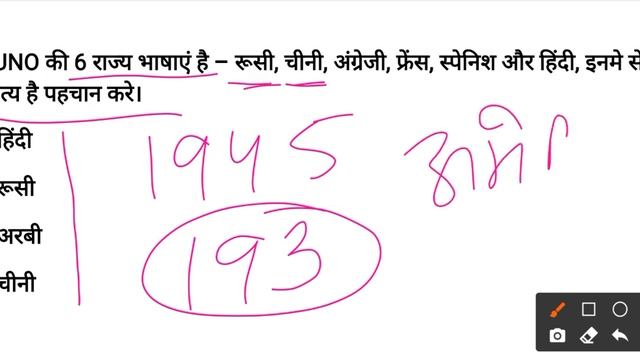 UNO की 6 राज्य भाषाएं है – रूसी, चीनी, अंग्रेजी, फ्रेंस, स्पेनिश और हिंदी, इनमे से
त्य है पहचान करे।
हिंदी
रूसी
अरबी
चीनी
1945
193
अमे